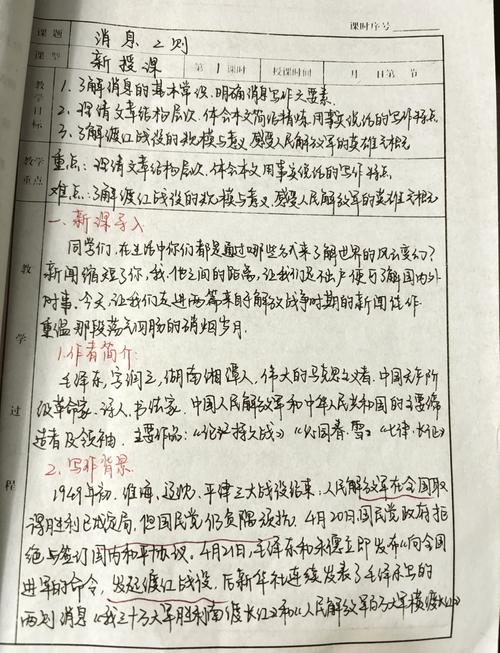 课时序号
课题 消息二则
课型 新授课 第1课时 授课时间 月 日第 节
教学目标 1.了解消息的基本常识,明确消息写作六要素
2.理清文章结构层次,体会本文简洁精炼、用事实说话的写作特点
3.了解渡江战役的规模与意义,感受人民解放军的英雄气概
教学重点 重点:理清文章结构层次,体会本文用事实说话的写作特点
难点:了解渡江战役的规模与意义,感受人民解放军的英雄气概
教学过程
一、新课导入
同学们,在生活中你们都是通过哪些方式来了解世界的风云变幻?
新闻缩短了你、我、他之间的距离,让我们足不出户便可了解国内外
时事。今天,让我们走进两篇来自解放战争时期的新闻佳作
重温那段荡气回肠的硝烟岁月。
1.作者简介:
毛泽东,字润之,湖南湘潭人,伟大的马克思主义者,中国无产阶
级革命家、诗人、书法家,中国人民解放军和中华人民共和国的主要缔
造者及领袖。主要作品:《论持久战》《沁园春·雪》《七律·长征》
2.写作背景
1949年初,淮海、辽沈、平津三大战役结束,人民解放军在全国取
得胜利已成定局,但国民党仍负隅顽抗,4月20日国民党政府拒
绝与签订国内和平协议,4月21日,毛泽东和朱德立即发布《向全国
进军的命令》,发起渡江战役,后新华社连续发表了毛泽东写的
两则消息《我三十万大军胜利南渡长江》和《人民解放军百万大军横渡长江》